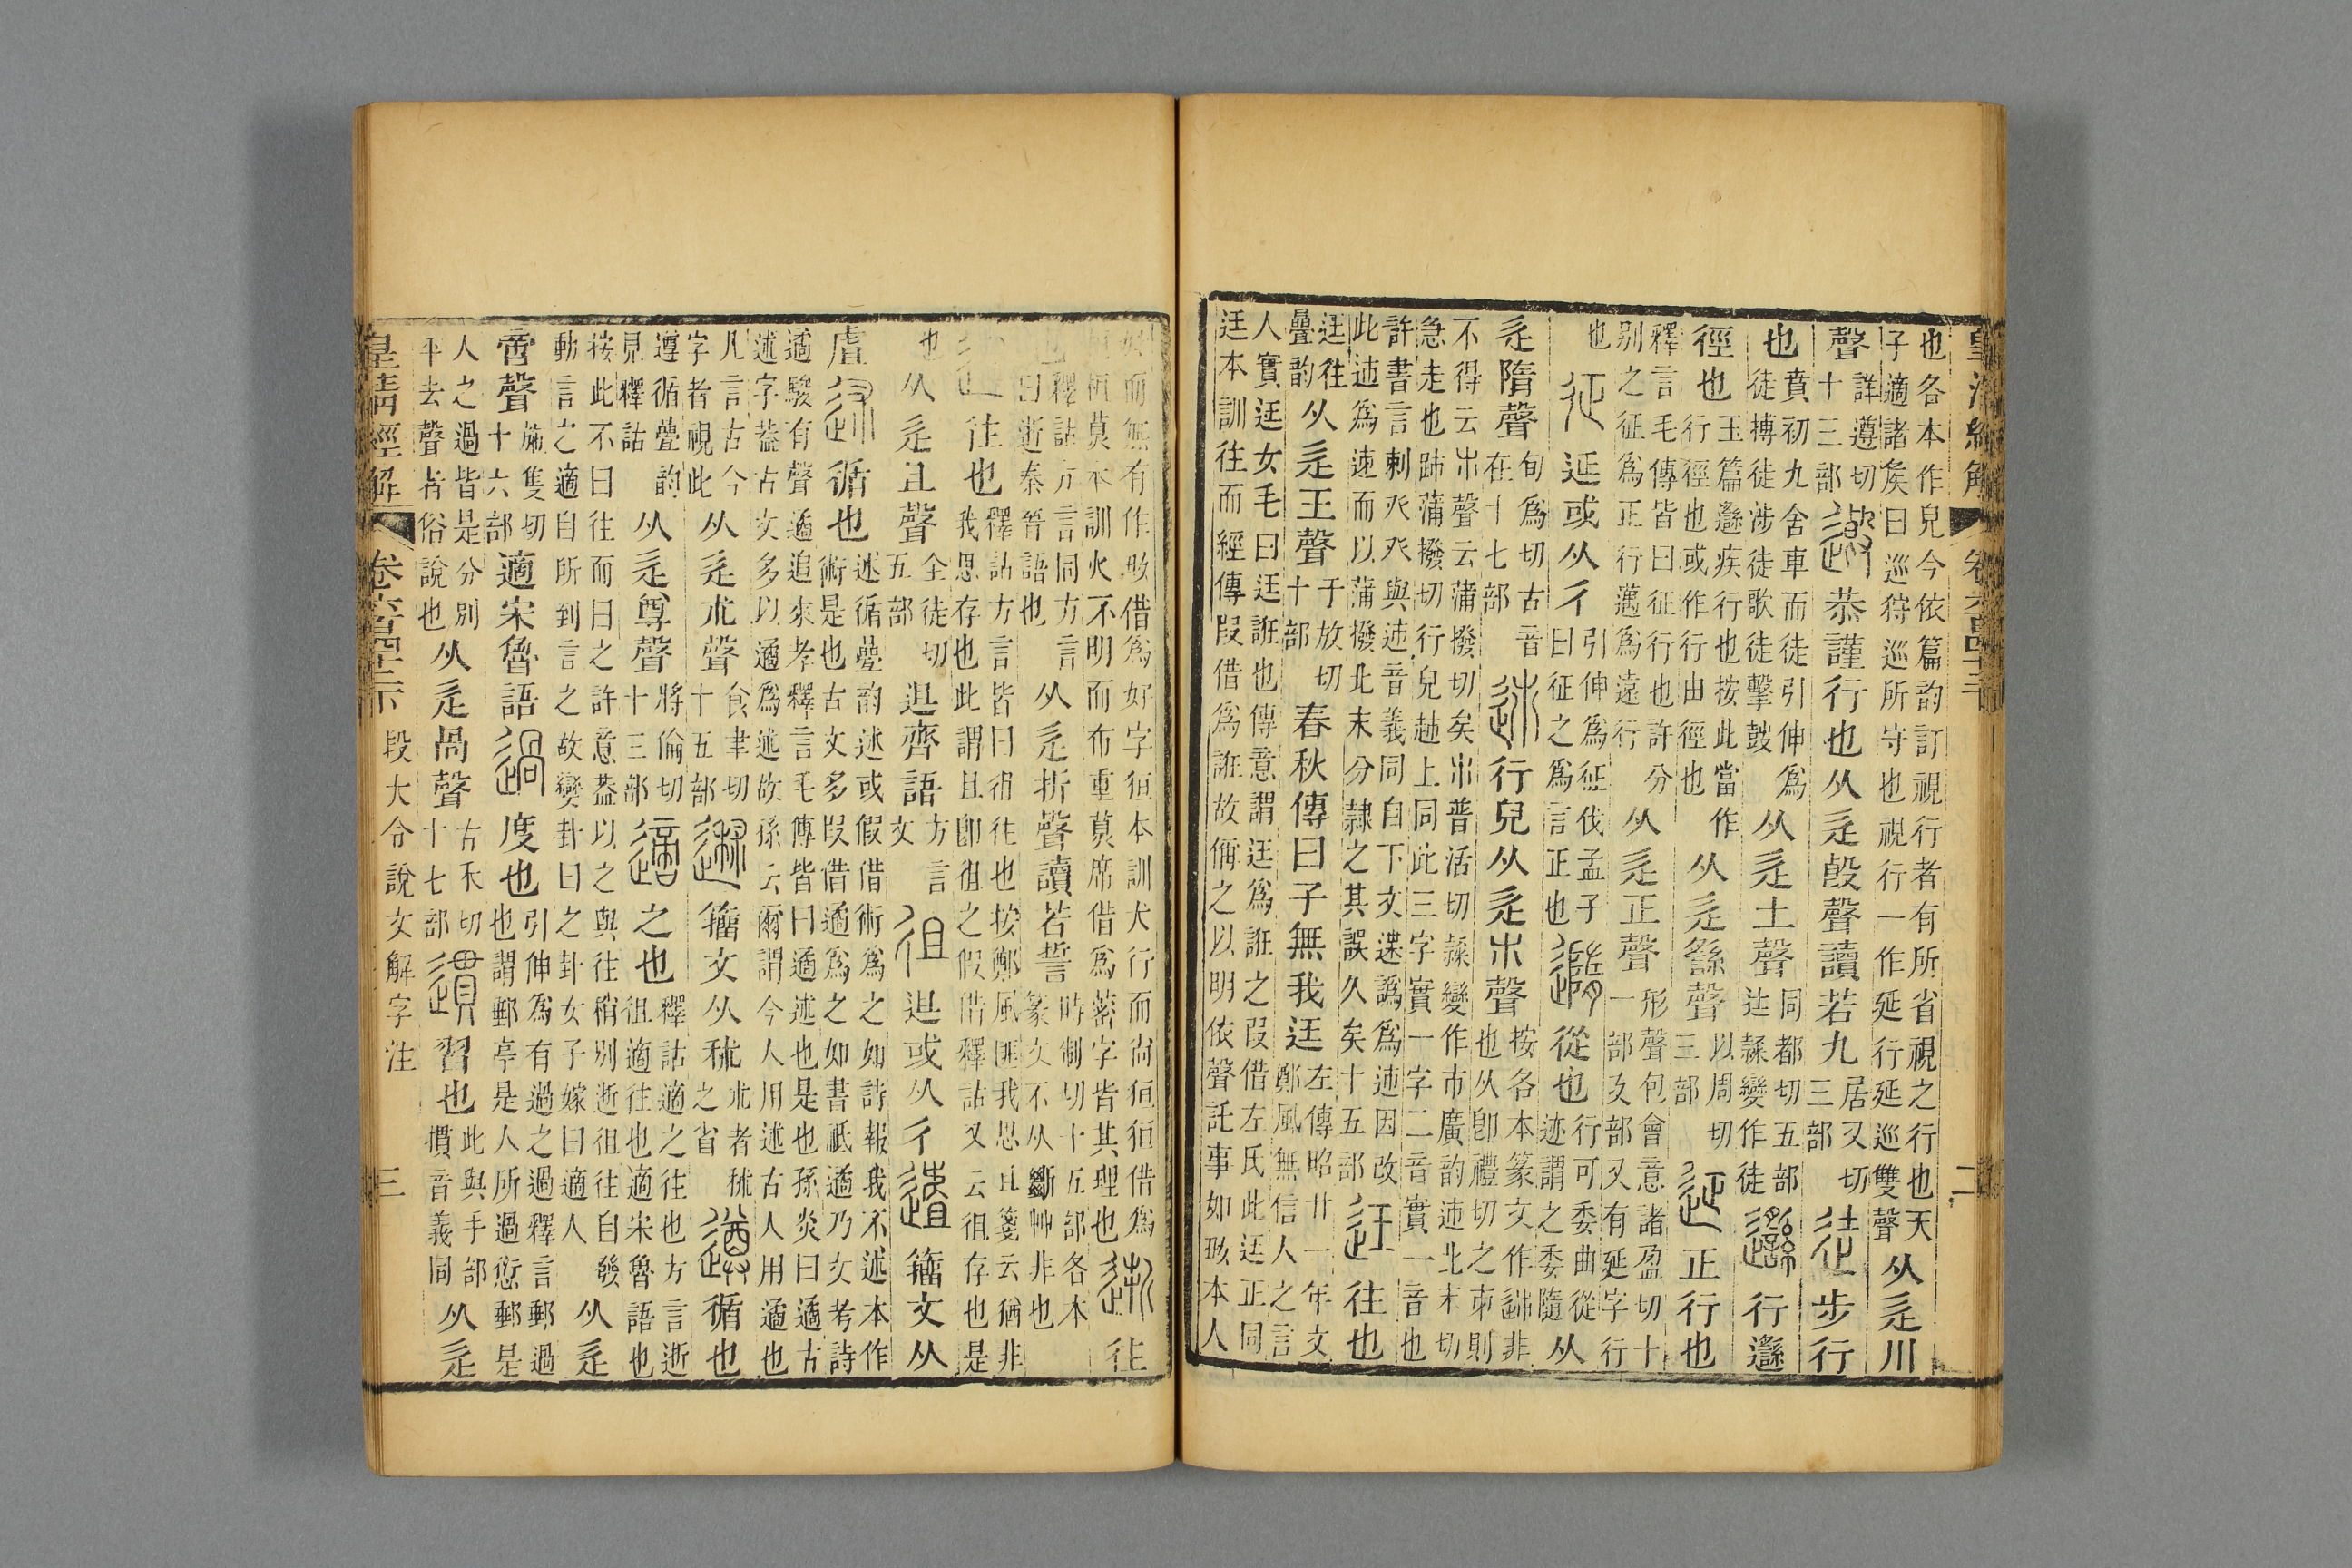 皇清經解　卷六百四十二下　二
也各本作皃今依篇韵訂視行者有所省視之行也天子適諸矦曰巡狩巡所守也視行一作延行延巡雙聲从辵川
聲詳遵切十三部恭謹行也从辵𣪘聲讀若九居又切三部徒步行
也賁初九舍車而徒引伸爲徒搏徒涉徒歌徒擊鼓从辵土聲同都切五部𨑒隸變作徒邎行邎
徑也玉篇邎疾行也按此當作行徑也或作行由徑也从辵䌛聲以周切三部延正行也
釋言毛傳皆曰征行也許分别之征爲正行邁爲遠行从辵正聲形聲包會意諸盈切十一部攴部又有延字行
也征延或从彳引伸爲征伐孟子曰征之爲言正也隨從也行可委曲從迹謂之委隨从
辵隋聲旬爲切古音在十七部行皃从辵巿聲按各本篆文作非也从卽禮切之𠂔則
不得云巿聲云蒲撥切矣巿普活切隸變作市廣韵迊北末切急走也蒲撥切行皃上同此三字實一字二音實一音也
許書言剌癶癶與迊音義同自下文迷譌爲迊因改此迊爲速而以蒲撥北末分隸之其誤久矣十五部迋往也
迋往疊韵从辵王聲于放切十部春秋傳曰子無我迋左傳昭廿一年文鄭風無信人之言
人實迋女毛曰迋誑也傳意謂迋爲誑之叚借左氏此迋正同迋本訓往而經傳叚借爲誑故偁之以明依聲託事如𡚽本人
姓而無有作𡚽借爲好字狟本訓犬行而尚狟狟借爲桓桓莫本訓火不明而布重莫席借爲蔑字皆其理也逝往
也釋詁方言同方言曰逝秦晉語也从辵折聲讀若誓時制切十五部各本篆文不从艸非也
𨑭往也釋詁方言皆曰徂往也按鄭風匪我思且箋云猶非我思存也此謂且卽徂之假借釋詁又云徂存也是
也从辵且聲全徒切五部𨑭齊語方言文徂𨑭或从彳籒文从
虘述循也述循疊韵述或假借術爲之如詩報我不述本作術是也古文多叚借遹爲之如書祗遹乃文考詩
遹駿有聲遹追來孝釋言毛傳皆曰遹述也是也孫炎曰遹古述字葢古文多以遹爲述故孫云爾謂今人用述古人用遹也
凡言古今字者視此从辵朮聲食聿切十五部籒文从秫朮者秫之省遵循也
遵循疊韵見釋詁从辵尊聲將倫切十三部適之也釋詁適之往也方言逝徂適往也適宋魯語也
按此不曰往而曰之許意葢以之與往稍别逝徂往自發動言之適自所到言之故變卦曰之卦女子嫁曰適人从辵
啻聲施隻切十六部適宋魯語過度也引伸爲有過之過釋言郵過也謂郵亭是人所過愆郵是
人之過皆是分別平去聲者俗說也从辵咼聲古禾切十七部遦習也此與手部摜音義同从辵
皇清經解　卷六百四十二下　段大令說文解字注　三